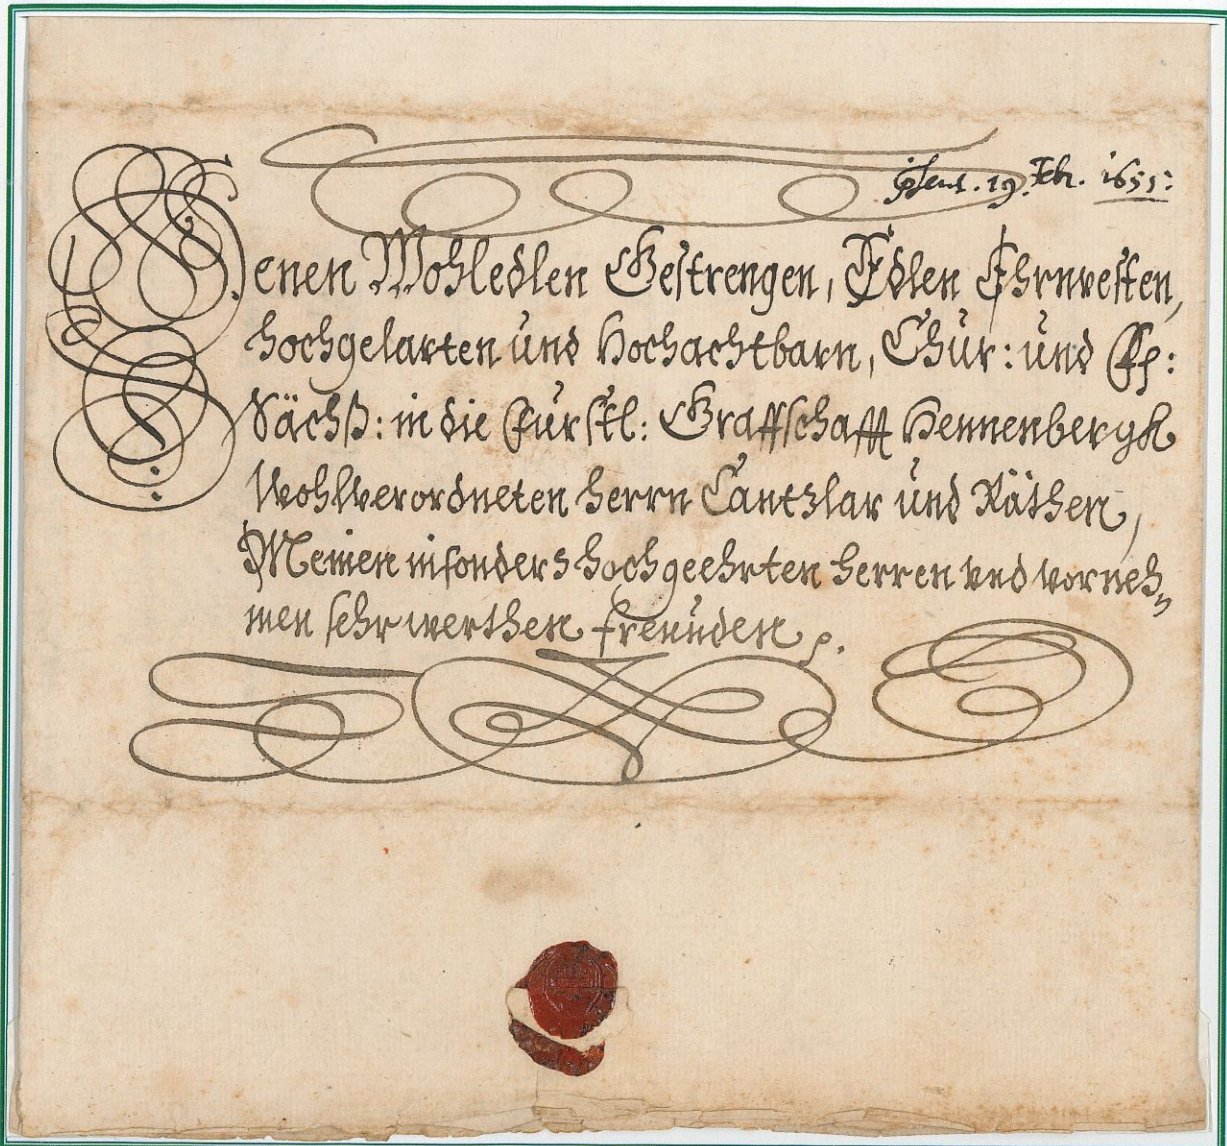 præsent. 19. Febr. 1655:
Denen Wohledlen Gestrengen, Edlen Ehrnvesten,
hochgelarten und Hochachtbarn, Chur: und Fp:
Sächß: in die Fürstl: Graffschafft Hennenbergk
Wohlverordneten Herrn Cantzlar und Räthen,
Meinen insonders hochgeehrten Herren vnd vorneh„
men sehr werthen freunden p.